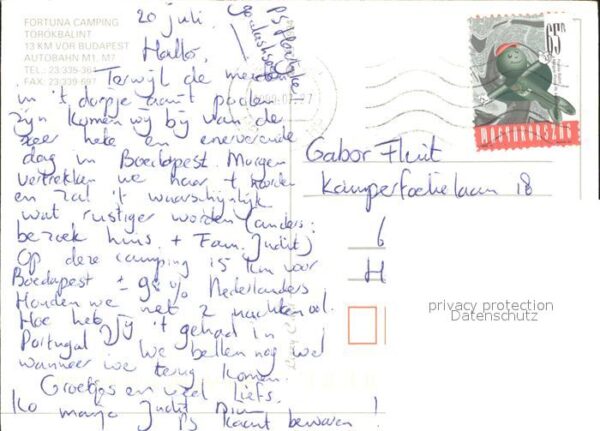 FORTUNA CAMPING
TÖRÖKBÁLINT
13 KM VOR BUDAPEST
AUTOBAHN M1. M7
TEL.: 23:335-36
FAX: 23:339-697
20 juli.
Hallo,
Terwijl de
in 't dorpje aan't
zijn komen wij bij van de
zeer hete en enerverende
dag in Boedapest. Morgen
vertrekken we naar 't noorden
en zal 't waarschijnlijk
wat rustiger worden (anders:
bezoek huis + Fam. Judit)
Op deze camping 15 km voor
Boedapest ± 98% Nederlanders
Houden we net 2 nachten vol.
Hoe heb jij 't gehad in
Portugal? We bellen nog wel
wanneer we terug komen.
Groetjes en veel liefs.
Ko Judit
PS kaart bewaren!
PS Hartelijke
65Ft
MAGYARORSZÁG
Gabor Fluit
Kamperfoelielaan 18
6
H
privacy protection
Datenschutz